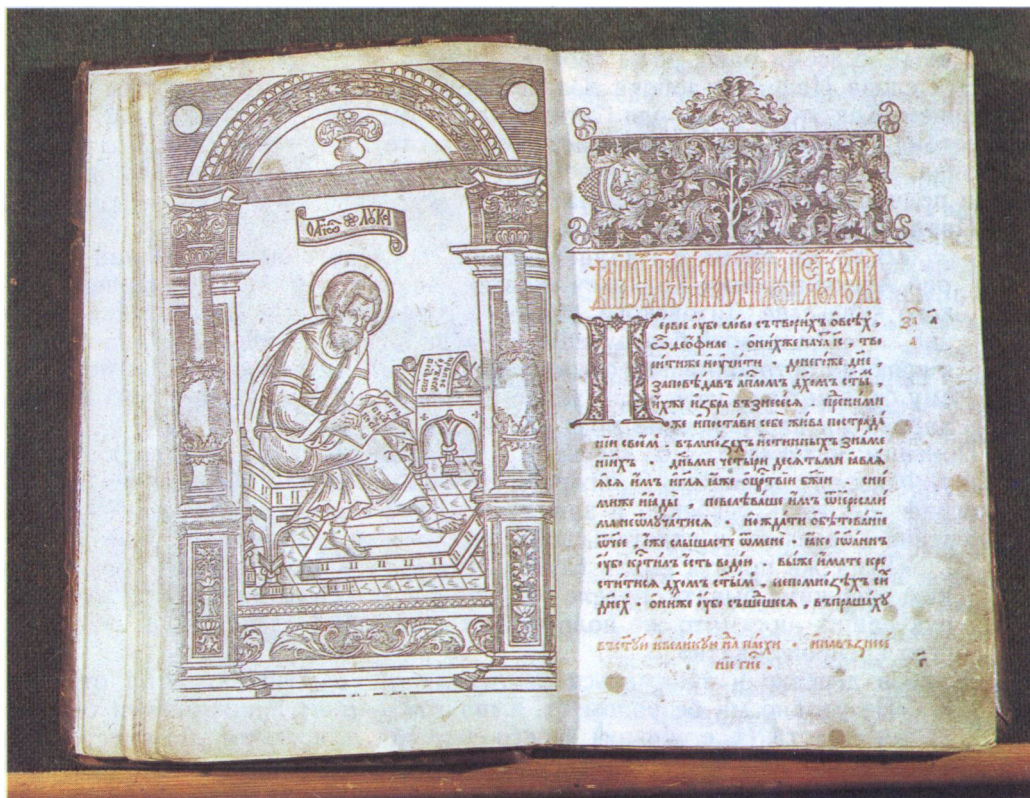 ОАГІОС ЛУКА
Первое оубо слово сътворихъ овсѣхъ,
ѽ деофиле . онихже начатъ іс҃, тво
ритиже иоучити . донегоже дн҃е,
заповѣдавъ апⷭ҇ломъ дх҃омъ ст҃ы́мъ,
ихже избра̀ възнесеся . пренⷨими
же ипостави себе жива пострада
нїи своемъ . въмноѕехъ истинныхъ зна́ме
нїихъ . дньми четыри десятьми ꙗвлѧ
ѧсѧ имъ . игл҃ѧ ꙗже оцрⷭ҇твїи бж҃їи . сни
миже иꙗды̀ , повелѣваше имъ ѿїеросали
ма неѿлучатисѧ . но ждати обѣтованїе
ѿчее , еже слышасте ѿмене . ꙗко їѡаннъ
оубо крⷭ҇тилъ есть водою . выже имате кре
ститисѧ дх҃омъ ст҃ы́мъ , непомноѕѣхъ си́хъ
дне́хъ . ониже оубо съшедшесѧ , въпрашахꙋ
въст҃ую ивеликую нлⷧ҇ю пасхи . инавъзнесе
нїе гн҃е .